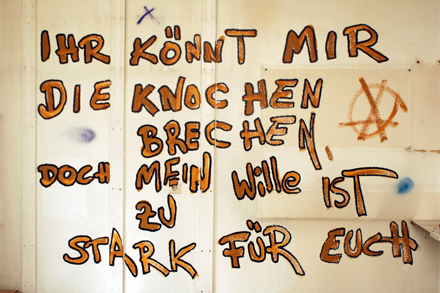 IHR KÖNNT MIR
DIE KNOCHEN
BRECHEN,
DOCH MEIN Wille IST
ZU
STARK FÜR EUCH